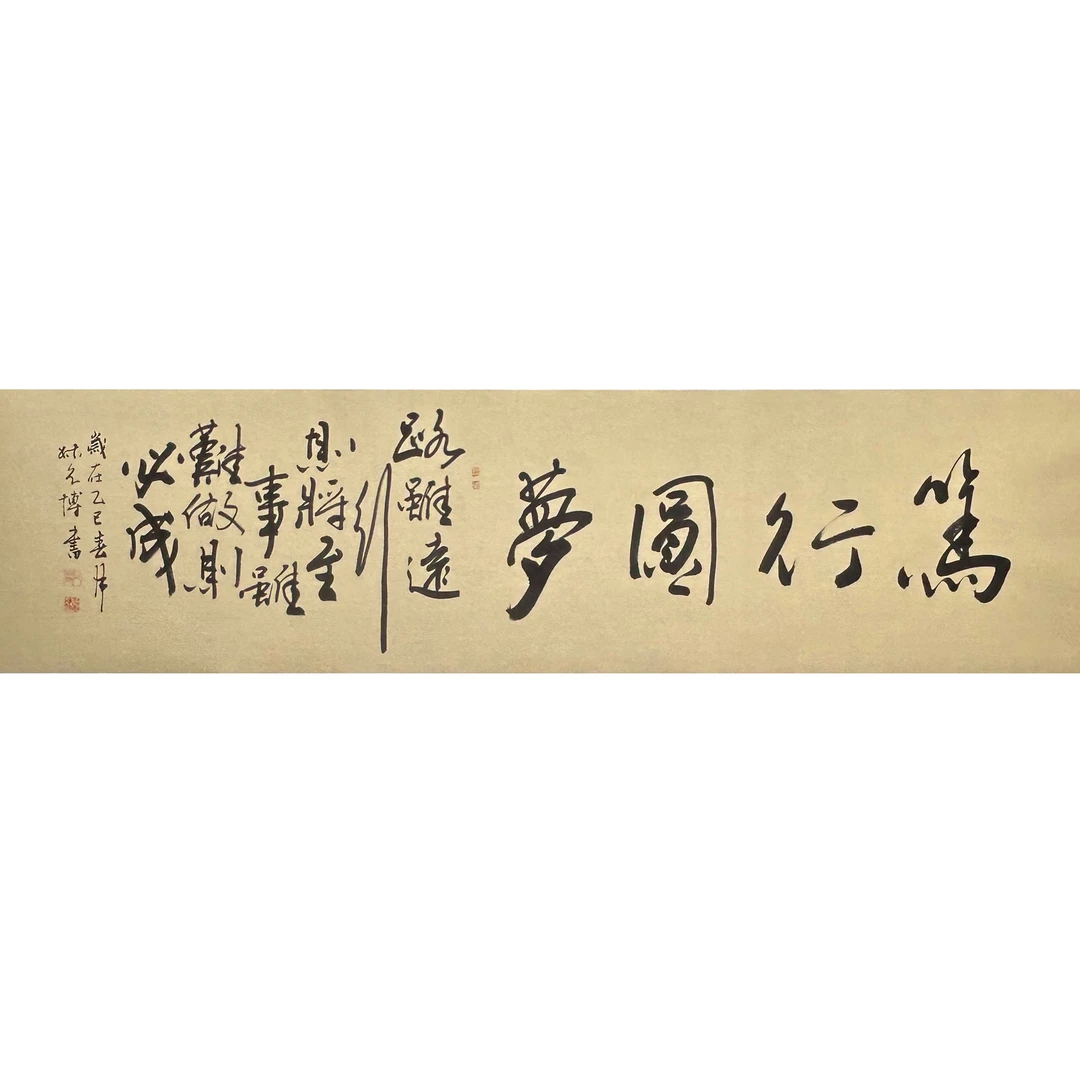 篤行圖夢
路雖遠
行
則將至
事雖
難做則
必成
歲在乙巳春月
博書